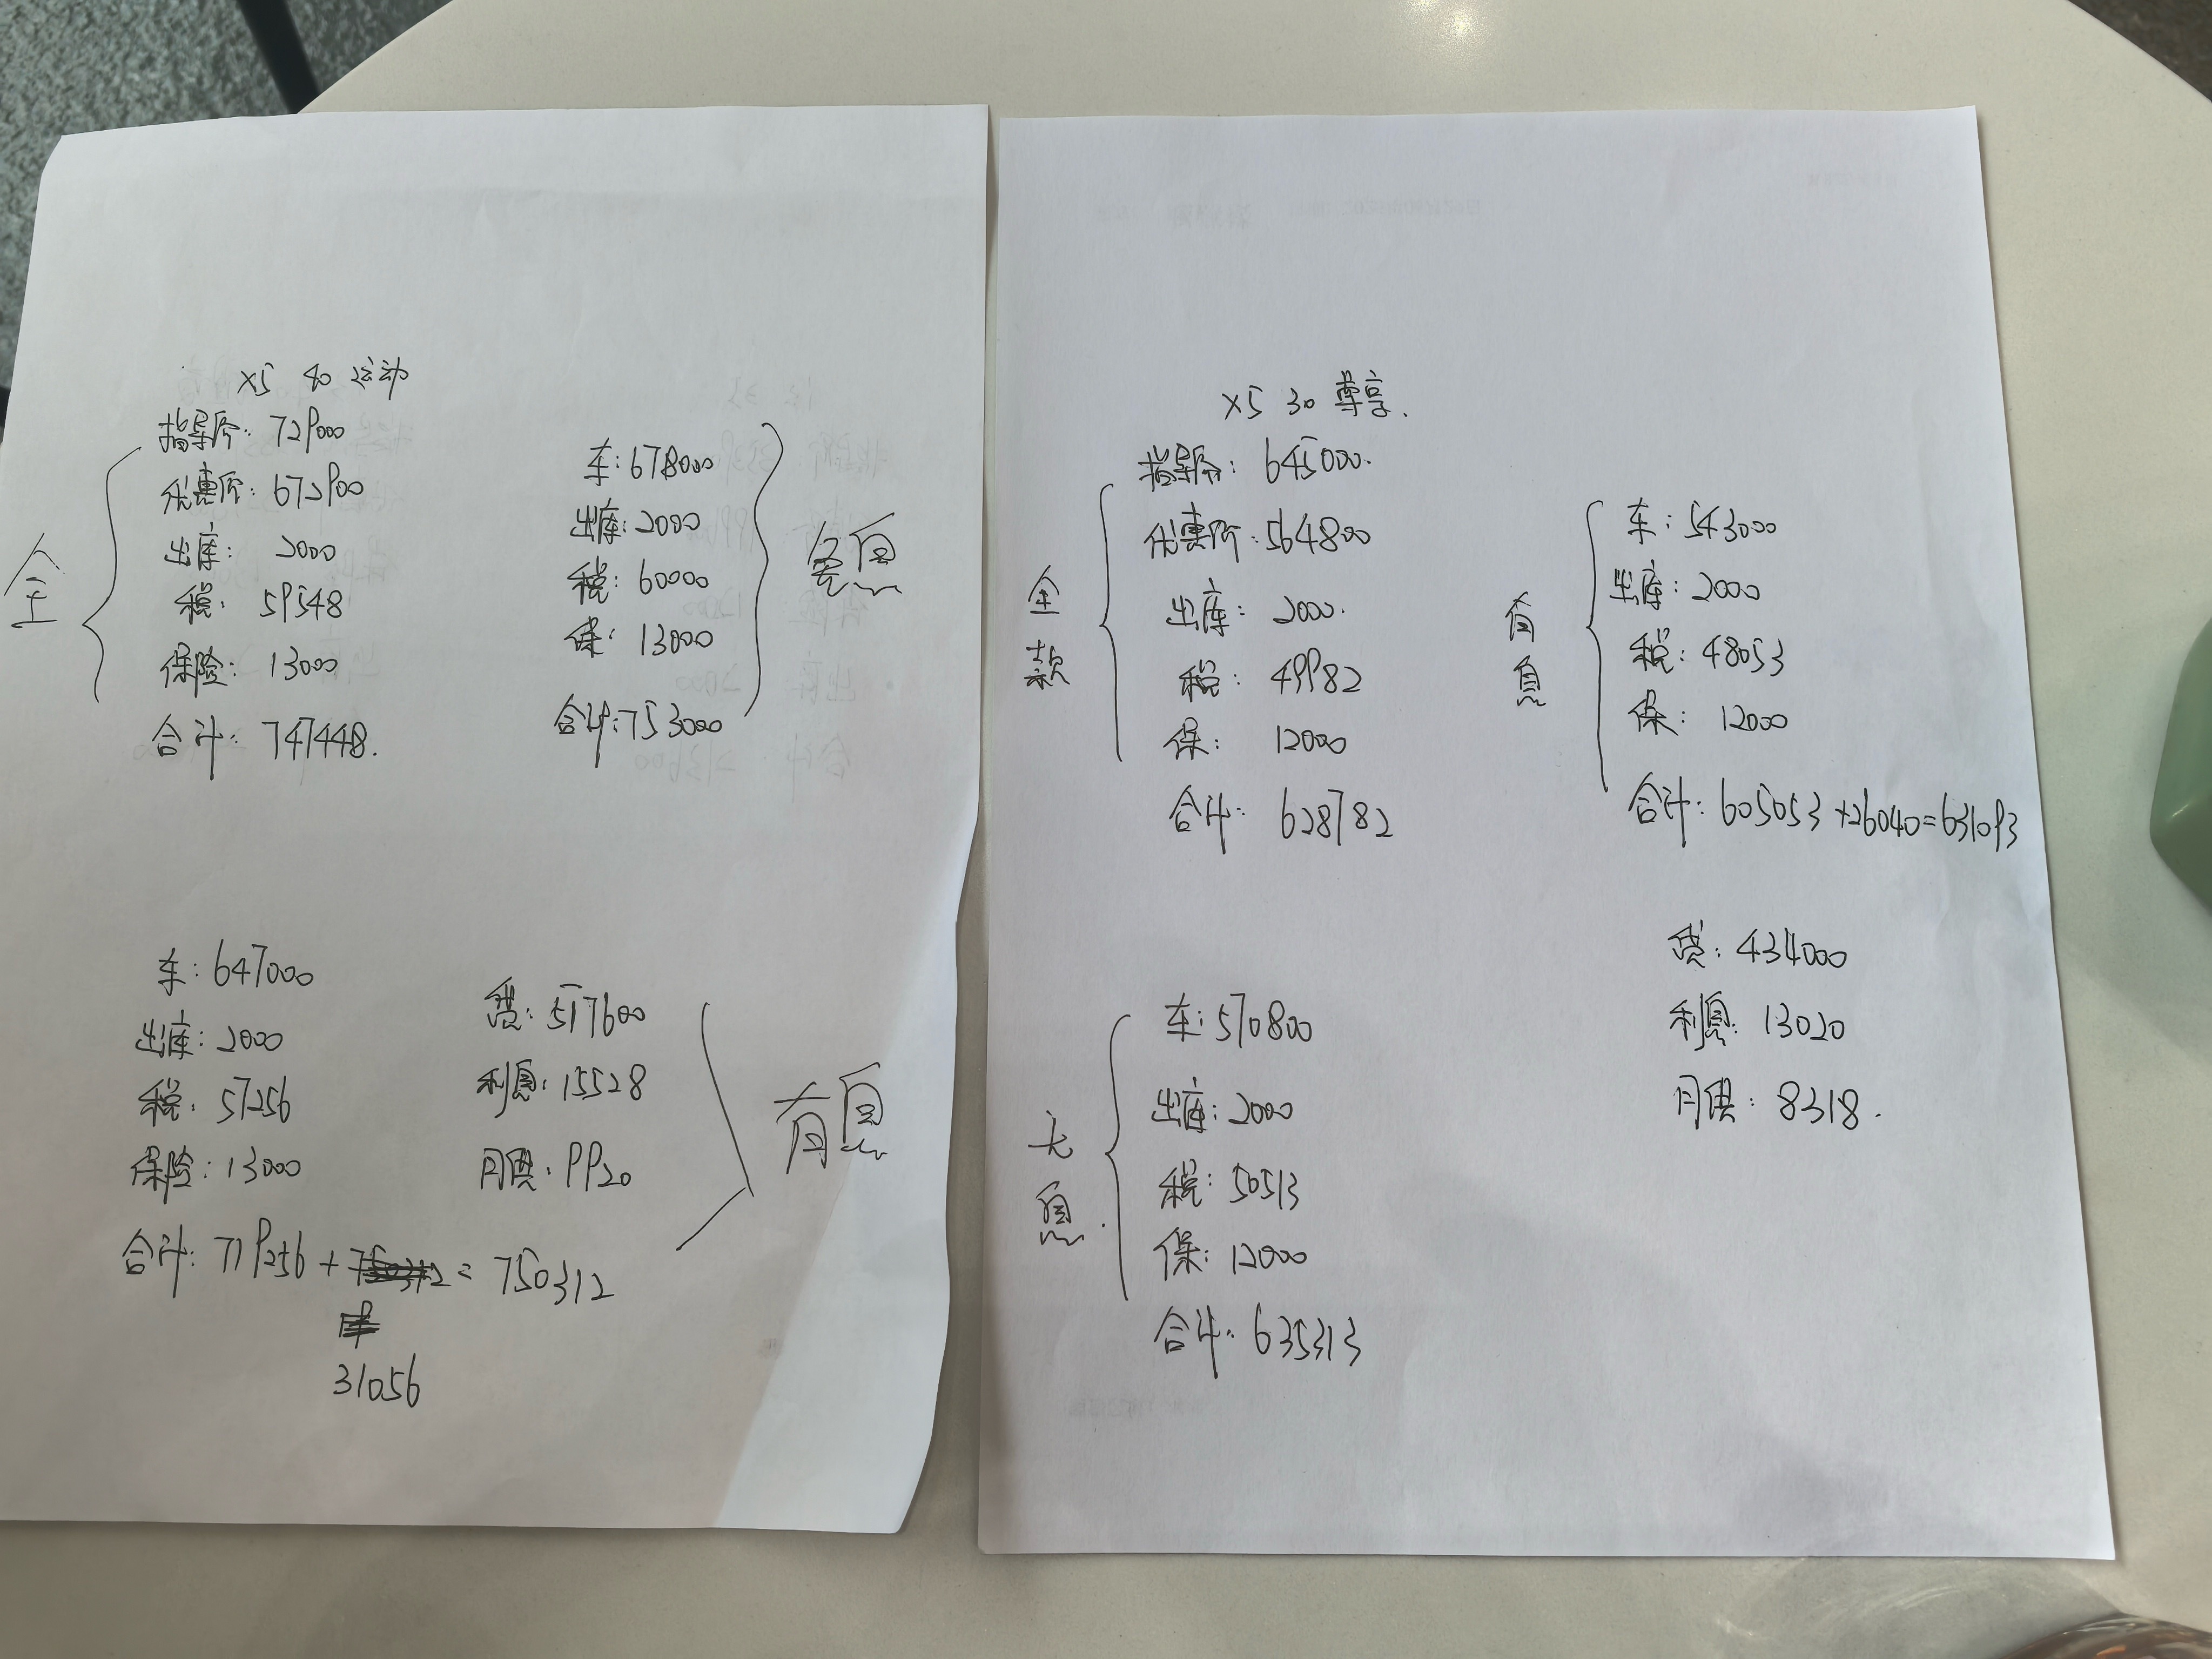 X5 40 运动
指导价: 729000
优惠价: 672900
出库: 2000
税: 59548
保险: 13000
合计: 747448.
全
车: 678000
出库: 2000
税: 60000
保: 13000
合计: 753000
息
车: 647000
出库: 2000
税: 57256
保险: 13000
合计: 719256 + = 750312
31056
贷: 517600
利息: 15528
月供: 9920
有息
X5 30 尊享.
指导价: 645000.
优惠价: 564800
出库: 2000.
税: 49982
保: 12000
合计: 628782
全款
车: 543000
出库: 2000
税: 48053
保: 12000
合计: 605053 +26040=631093
有息
贷: 434000
利息: 13020
月供: 8318.
车: 570800
出库: 2000
税: 50513
保: 12000
合计: 635313
无息.